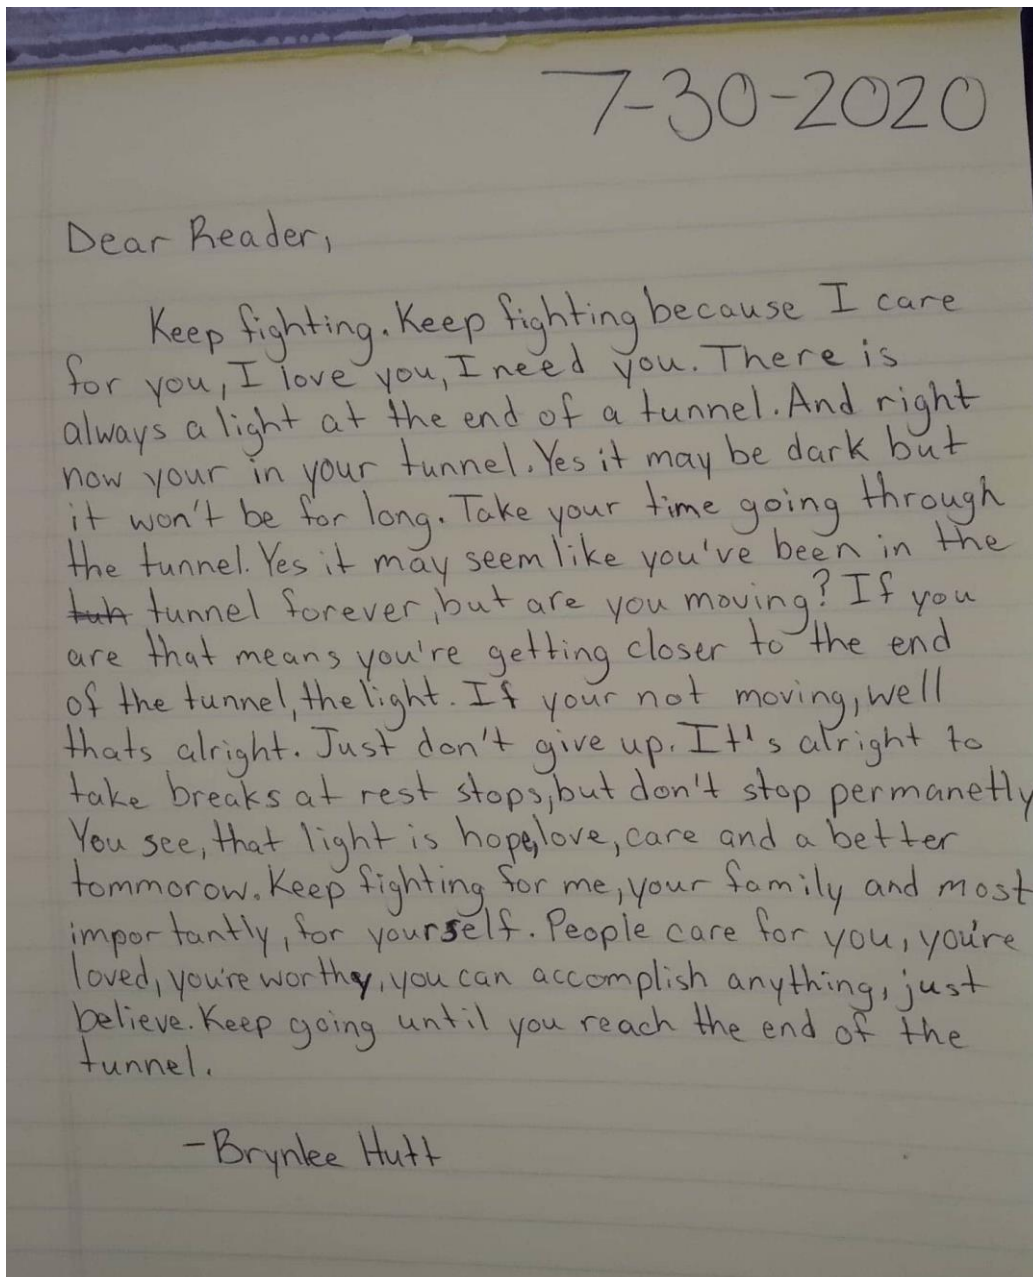 7-30-2020
Dear Reader,
Keep fighting. Keep fighting because I care
for you, I love you, I need you. There is
always a light at the end of a tunnel. And right
now your in your tunnel. Yes it may be dark but
it won't be for long. Take your time going through
the tunnel. Yes it may seem like you've been in the
tuh tunnel forever, but are you moving? If you
are that means you're getting closer to the end
of the tunnel, the light. If your not moving, well
thats alright. Just don't give up. It's alright to
take breaks at rest stops, but don't stop permanetly
You see, that light is hope, love, care and a better
tommorow. Keep fighting for me, your family and most
importantly, for yourself. People care for you, you're
loved, you're worthy, you can accomplish anything, just
believe. Keep going until you reach the end of the
tunnel.
-Brynlee Hutt